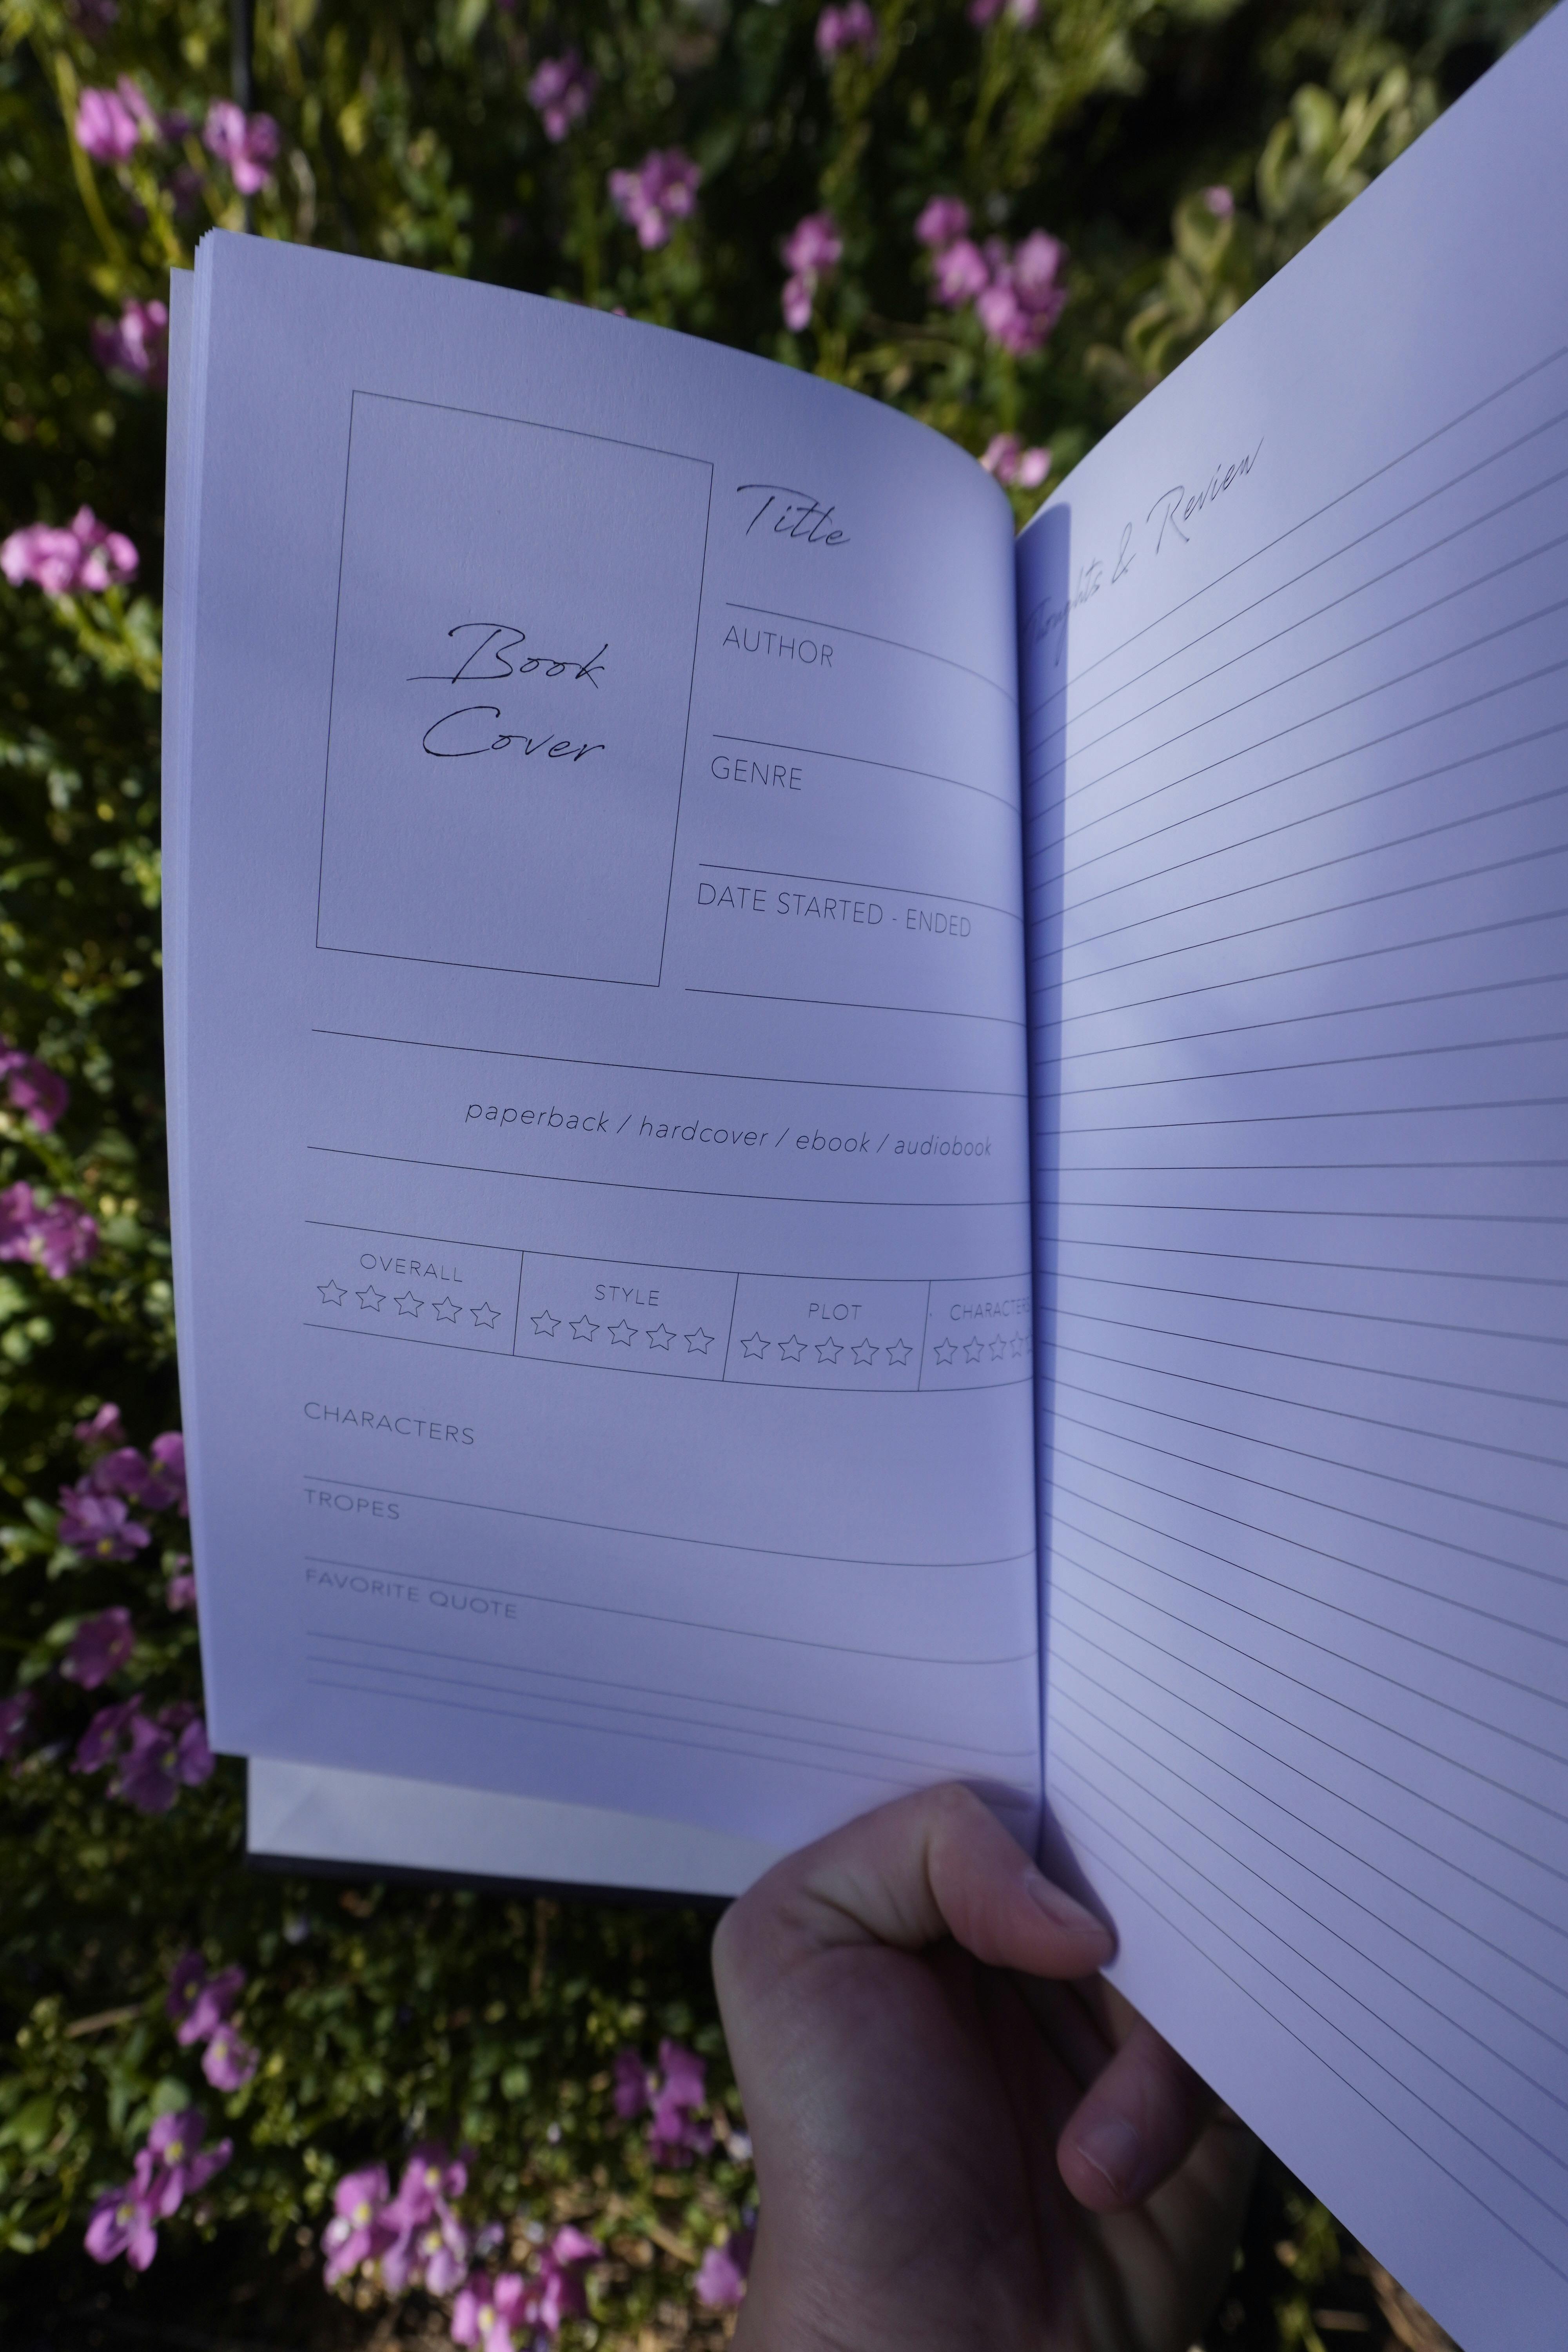 Book
Cover
Title
AUTHOR
GENRE
DATE STARTED - ENDED
paperback / hardcover / ebook / audiobook
OVERALL
STYLE
PLOT
CHARACTERS
CHARACTERS
TROPES
FAVORITE QUOTE
Thoughts & Review